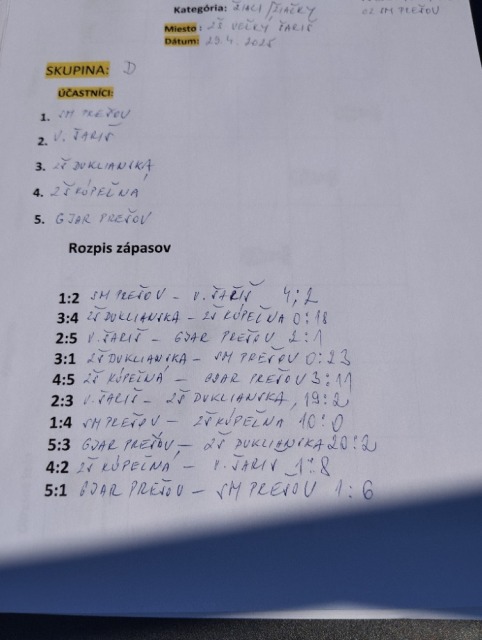 Kategória: ŽIACI/ŽIAČKY
02 SM PREŠOV
Miesto: ZŠ VEĽKÝ ŠARIŠ
Dátum: 29.4. 2025
SKUPINA: D
ÚČASTNÍCI:
1. SM PREŠOV
2. V. ŠARIŠ
3. ZŠ DUKLIANSKA
4. ZŠ KÚPEĽNÁ
5. GJAR PREŠOV
Rozpis zápasov
1:2 SM PREŠOV - V. ŠARIŠ 4:2
3:4 ZŠ DUKLIANSKA - ZŠ KÚPEĽNA 0:18
2:5 V. ŠARIŠ - GJAR PREŠOV 2:1
3:1 ZŠ DUKLIANSKA - SM PREŠOV 0:23
4:5 ZŠ KÚPEĽNÁ - GJAR PREŠOV 3:11
2:3 V. ŠARIŠ - ZŠ DUKLIANSKA 19:2
1:4 SM PREŠOV - ZŠ KÚPEĽNA 10:0
5:3 GJAR PREŠOV - ZŠ DUKLIANSKA 20:2
4:2 ZŠ KÚPEĽNÁ - V. ŠARIŠ 1:8
5:1 GJAR PREŠOV - SM PREŠOV 1:6